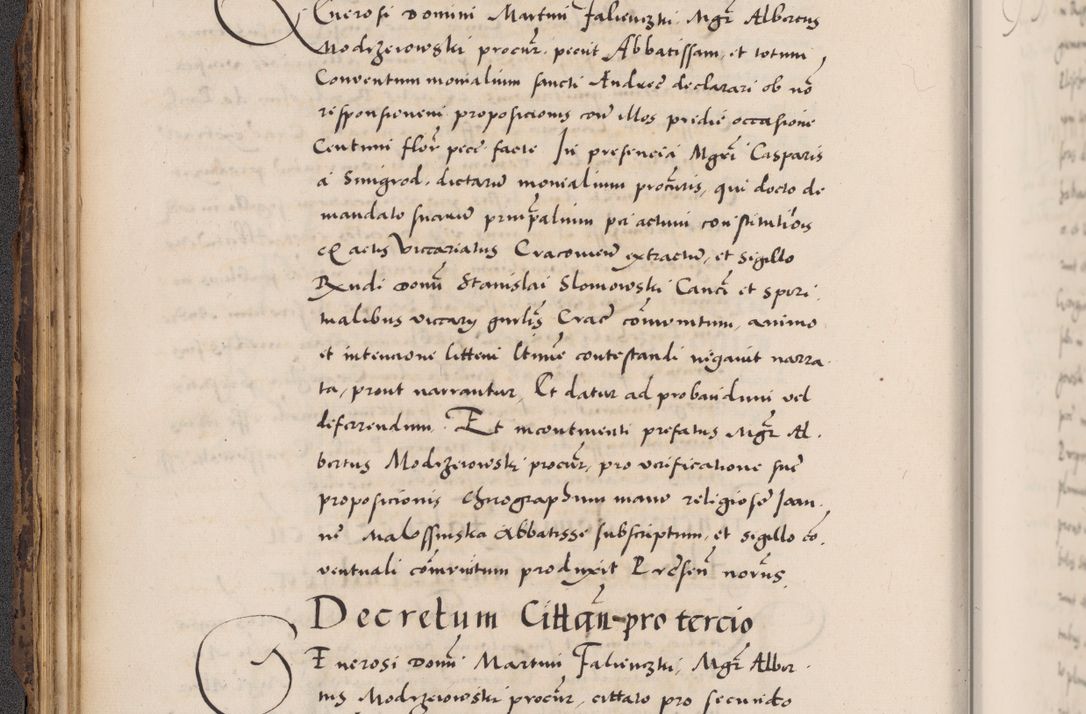 Generosi Domini Martini Falienczki Mgr Albertus
Modrzeiowski procur petiit Abbatissam et totum
Conventum monialium sancti Andree declarari ob no
responsionem propositionis con illos predie occasione
Centum flor pece facte In presencia Mgri Casparis
a Smigrod dictarum monialium procuris, qui docto de
mandato suarum principalium per actum constitutiois
ex actis Vicariatus Cracovien extractum, et sigillo
Rndi Domi Stanislai Slomowski Canci et spiri
tualibus vicarij gnrlis Crac comunitum, animo
et intencione litteni litem contestandi negavit narra
ta, prout narrantur, Et datur ad probandum vel
deferendum. Et incontinenti prefatus Mgr Al
bertus Modrzeiowski procur, pro verificatione sue
propositionis chirographum manu religiose Joan
ne Malossinska Abbatisse subscriptum, et sigillo co
ventuali comunitum produxit Presen norus
Decretum Cittan pro tercio
Generosi Domi Martini Falienczki, Mgr Alber
tus Modrzeiowski procur, cittato pro secundo